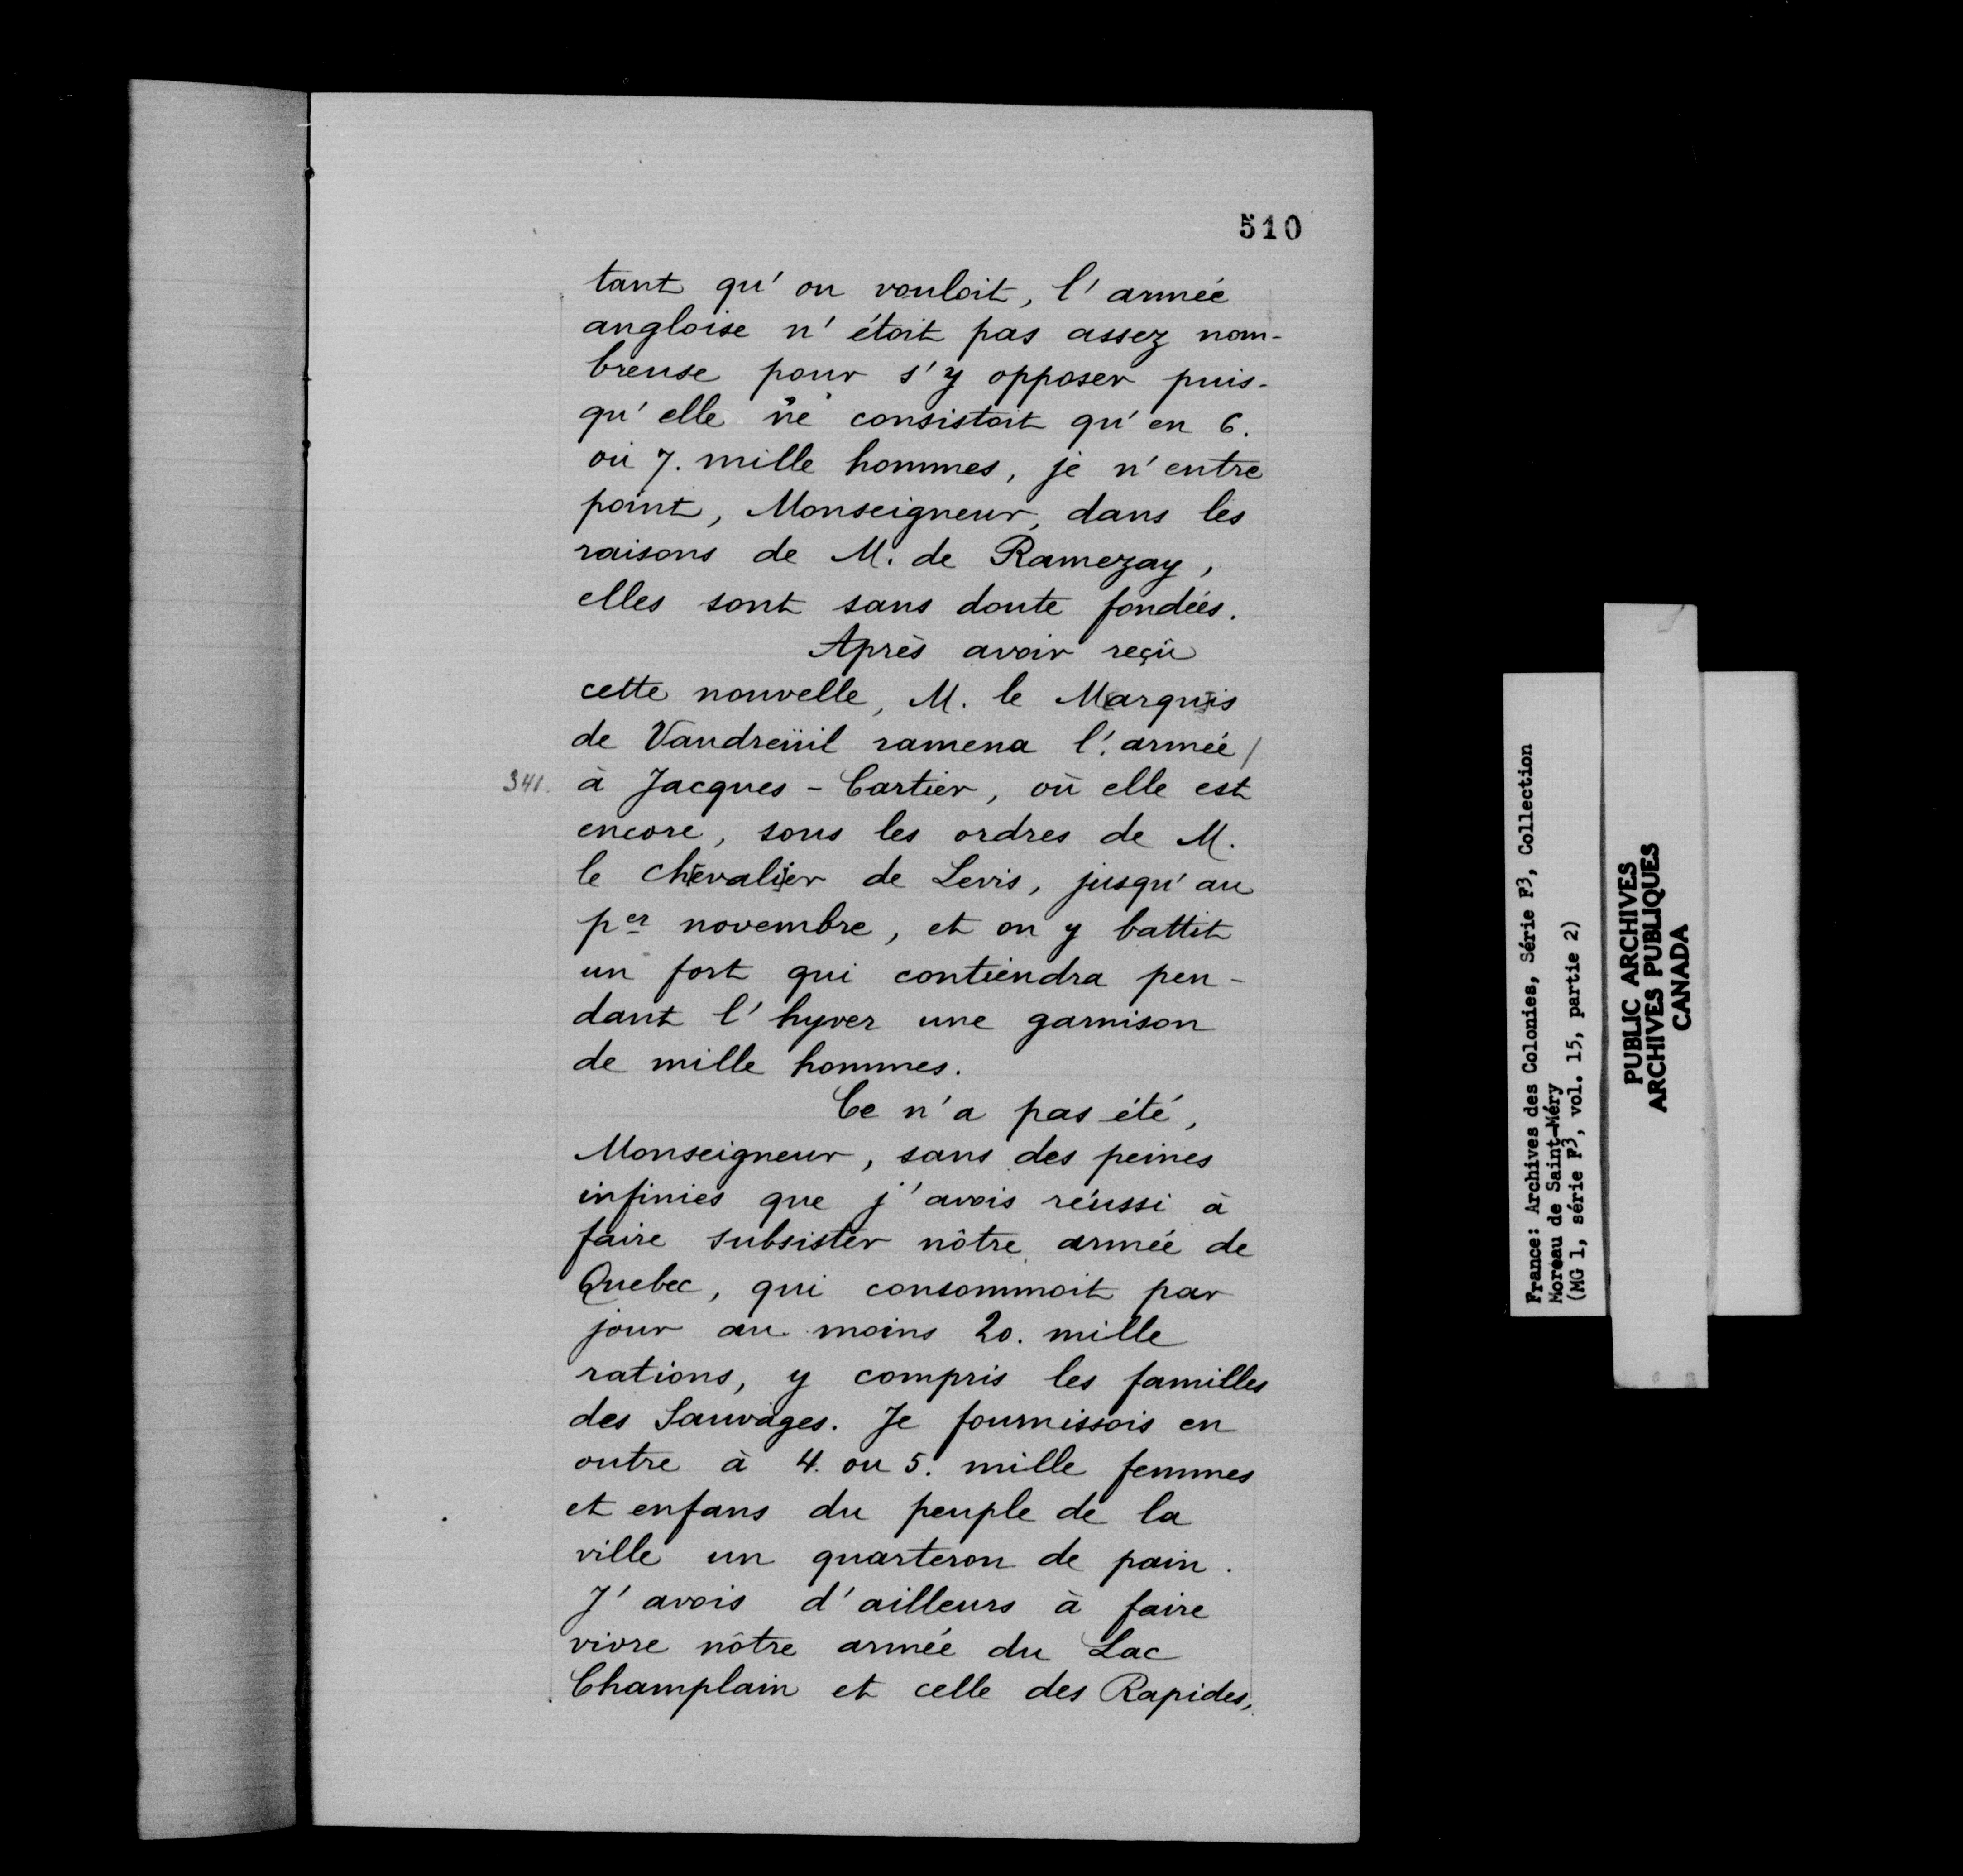 510
tant qu'on vouloit, l'armée
angloise n'étoit pas assez nom-
breuse pour s'y opposer puis-
qu'elle ne consistoit qu'en 6.
ou 7. mille hommes, je n'entre
point, Monseigneur, dans les
raisons de M. de Ramezay,
elles sont sans doute fondées.
Après avoir reçû
cette nouvelle, M. le Marquis
de Vaudreüil ramena l'armée /
341. à Jacques-Cartier, où elle est
encore, sous les ordres de M.
le chevalier de Levis, jusqu'au
per novembre, et on y battit
un fort qui contiendra pen-
dant l'hyver une garnison
de mille hommes.
Ce n'a pas été,
Monseigneur, sans des peines
infinies que j'avois réussi à
faire subsister nôtre armée de
Quebec, qui consommoit par
jour au moins 20. mille
rations, y compris les familles
des Sauvages. Je fournissois en
outre à 4. ou 5. mille femmes
et enfans du peuple de la
ville un quarteron de pain.
J'avois d'ailleurs à faire
vivre nôtre armée du Lac
Champlain et celle des Rapides,
France: Archives des Colonies, Série F3, Collection
Moreau de Saint-Méry
(MG 1, série F3, vol. 15, partie 2)
PUBLIC ARCHIVES
ARCHIVES PUBLIQUES
CANADA